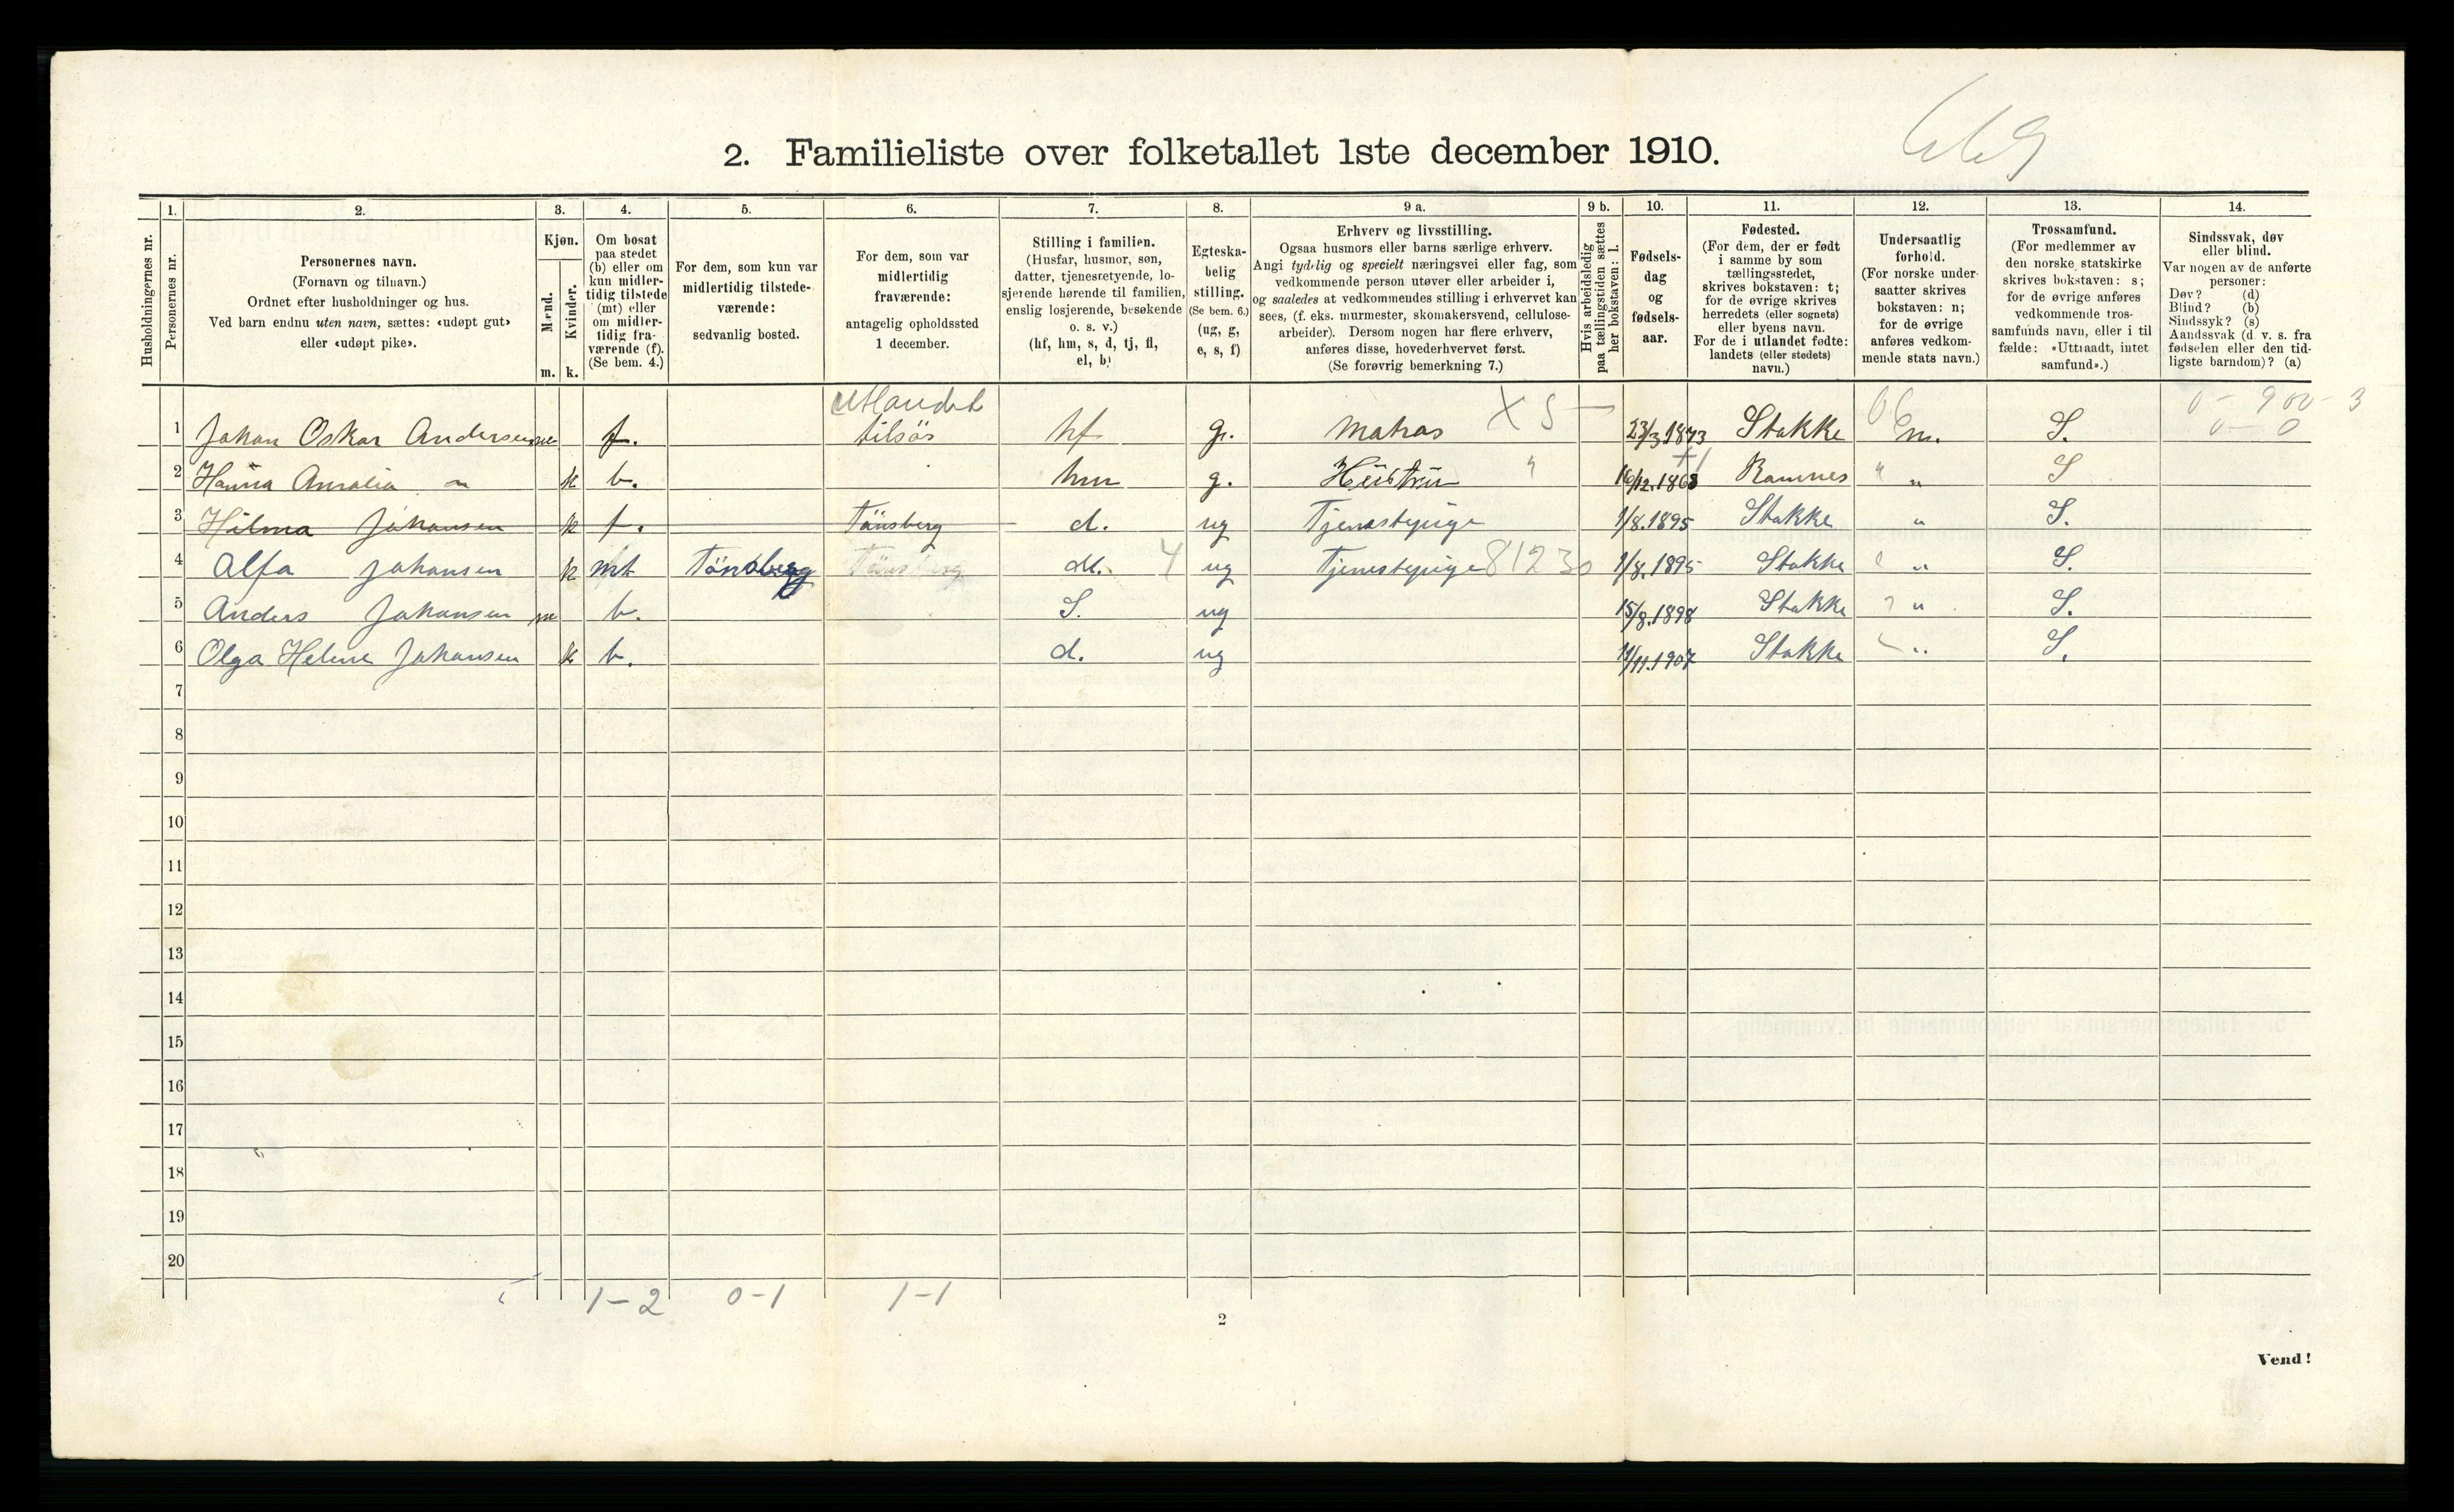 2. Familieliste over folketallet 1ste december 1910.
Husholdningernes nr.
1.
Personernes nr.
2.
Personernes navn.
(Fornavn og tilnavn.)
Ordnet efter husholdninger og hus.
Ved barn endnu uten navn, sættes: «udøpt gut»
eller «udøpt pike».
3.
Kjøn.
Mænd.
Kvinder.
m. k.
4.
Om bosat
paa stedet
(b) eller om
kun midler-
tidig tilstede
(mt) eller
om midler-
tidig fra-
værende (f).
(Se bem. 4.)
5.
For dem, som kun var
midlertidig tilstede-
værende:
sedvanlig bosted.
6.
For dem, som var
midlertidig
fraværende:
antagelig opholdssted
1 december.
7.
Stilling i familien.
(Husfar, husmor, søn,
datter, tjenestetyende, lo-
sjerende hørende til familien,
enslig losjerende, besøkende
o. s. v.)
(hf, hm, s, d, tj, fl,
el, b)
8.
Egteska-
belig
stilling.
(Se bem. 6.)
(ug, g,
e, s, f)
9 a.
Erhverv og livsstilling.
Ogsaa husmors eller barns særlige erhverv.
Angi tydelig og specielt næringsvei eller fag, som
vedkommende person utøver eller arbeider i,
og saaledes at vedkommendes stilling i erhvervet kan
sees, (f. eks. murmester, skomakersvend, cellulose-
arbeider). Dersom nogen har flere erhverv,
anføres disse, hovederhvervet først.
(Se forøvrig bemerkning 7.)
9 b.
Hvis arbeidsledig
paa tællingstiden sættes
her bokstaven: l.
10.
Fødsels-
dag
og
fødsels-
aar.
11.
Fødested.
(For dem, der er født
i samme by som
tællingsstedet,
skrives bokstaven: t;
for de øvrige skrives
herredets (eller sognets)
eller byens navn.
For de i utlandet fødte:
landets (eller stedets)
navn.)
12.
Undersaatlig
forhold.
(For norske under-
saatter skrives
bokstaven: n;
for de øvrige
anføres vedkom-
mende stats navn.)
13.
Trossamfund.
(For medlemmer av
den norske statskirke
skrives bokstaven: s;
for de øvrige anføres
vedkommende tros-
samfunds navn, eller i til
fælde: «Uttraadt, intet
samfund».)
14.
Sindssvak, døv
eller blind.
Var nogen av de anførte
personer:
Døv? (d)
Blind? (b)
Sindssyk? (s)
Aandssvak (d. v. s. fra
fødselen eller den tid-
ligste barndom)? (a)
utlandet
1 Johan Oskar Andersen m f. tilsös hf g. Matros X 5 23/3 1873 Stokke n. S.
2 Hanna Amalia " k b. hm g. Hüstrü " 16/12 1868 Ramnes " S
3 Hilma Johansen k f. Tönsberg d. ug Tjenestepige 1/8.1895 Stokke " S.
4 Alfa Johansen k mt Tönsberg Tönsberg d. 4 ug Tjenestepige 81230 1/8.1895 Stokke " S.
5 Anders Johansen m b. S. ug 15/8.1898 Stokke " S.
6 Olga Helene Johansen k b. d. ug 11/11.1907 Stokke " S.
7
8
9
10
11
12
13
14
15
16
17
18
19
20
1-2 0-1 1-1
2
Vend!